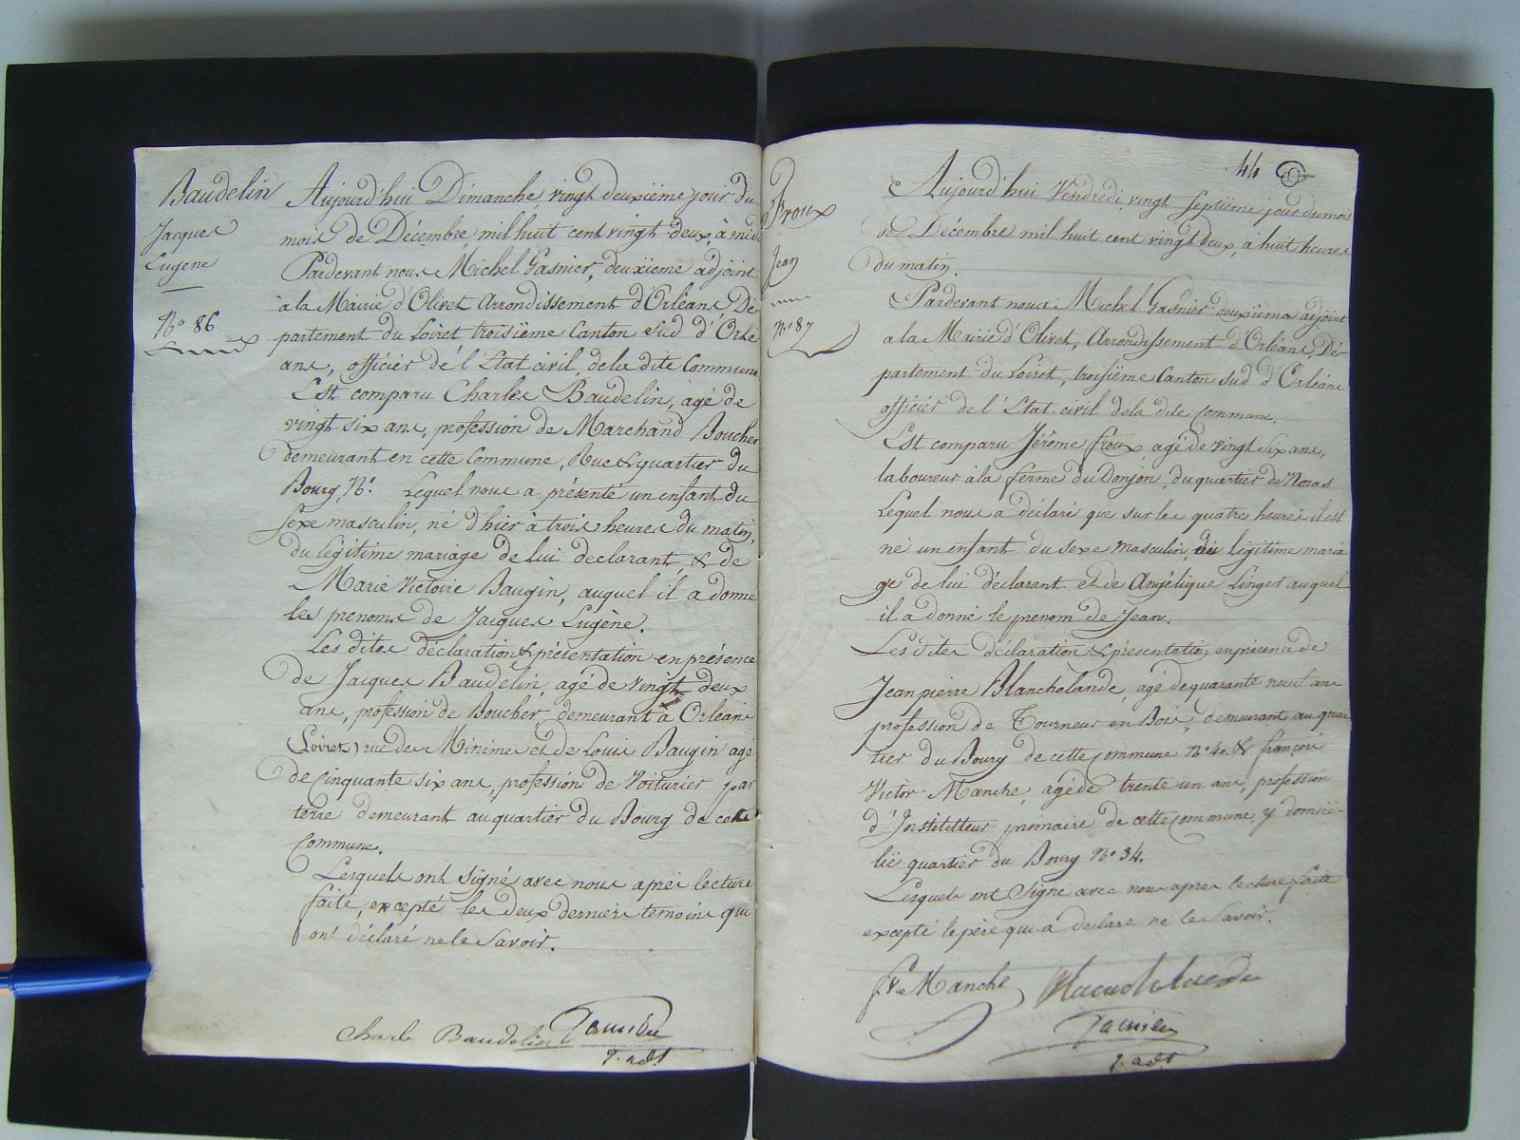 Baudelin
Jacques
Eugene
No. 86
Aujourd'hui Dimanche vingt deuxiëme jour du
mois de Décembre mil huit cent vingt deux, à midi
Pardevant nous Michel Gasnier, deuxieme adjoint
à la Mairie d'Olivet Arrondissement d'Orléans Dé
partement du Loiret troisiëme Canton sud d'Orlé
ans, officier de l'Etat civil de la dite Commune
Est comparu Charles Baudelin, agé de
vingt six ans, profession de Marchand Boucher
demeurant en cette Commune, Rue & quartier du
Bourg, No. Lequel nous a présenté un enfant du
sexe masculin, né d'hier à trois heures du matin,
du légitime mariage de lui declarant, & de
Marie Victoire Baugin, auquel il a donné
les prenoms de Jacques Eugène.
Les dites déclaration & présentation en présence
de Jacques Baudelin, agé de vingt deux
ans, profession de Boucher, demeurant à Orléans
(Loiret) rue des Minimes et de Louis Baugin agé
de Cinquante six ans, profession de Voiturier par
terre demeurant au quartier du Bourg de cette
Commune.
Lesquels ont signé avec nous après lecture
faite, excepté les deux derniers temoins qui
ont déclaré ne le Savoir.
Charle Baudelin Gasnier
2. adt
44
Froux
Jean
No. 87
Aujourd'hui Vendredi vingt Septième jour du mois
de Décembre mil huit cent vingt deux, à huit heures
du matin.
Pardevant nous Michel Gasnier deuxième adjoint
a la Mairie d'Olivet, Arrondissement d'Orléans, Dé-
partement du Loiret, troisiëme Canton sud d'Orléans
officier de l'Etat civil de la dite Commune.
Est comparu Jérôme froux agé de vingt six ans,
laboureur à la ferme du Donjon, du quartier de Noras
Lequel nous a déclaré que sur les quatre heures il est
né un enfant du sexe masculin, du légitime maria
ge de lui déclarant et de Angélique Linget auquel
il a donné le prenom de Jean.
Les dites déclaration & présentation en présence de
Jean pierre Blanchelande, agé de quarante neuf ans
profession de Tourneur en Bois, demeurant au quar
tier du Bourg de cette commune No. 40 & françois
Victor Manche, agé de trente un ans, profession
d'Instituteur primaire de cette Commune, y domici-
lié quartier du Bourg No. 34.
Lesquels ont Signé avec nous apres lecture faite
excepté le père qui a declaré ne le Savoir.
fs Vr Manche Blanchelande
Gasnier
2. adt